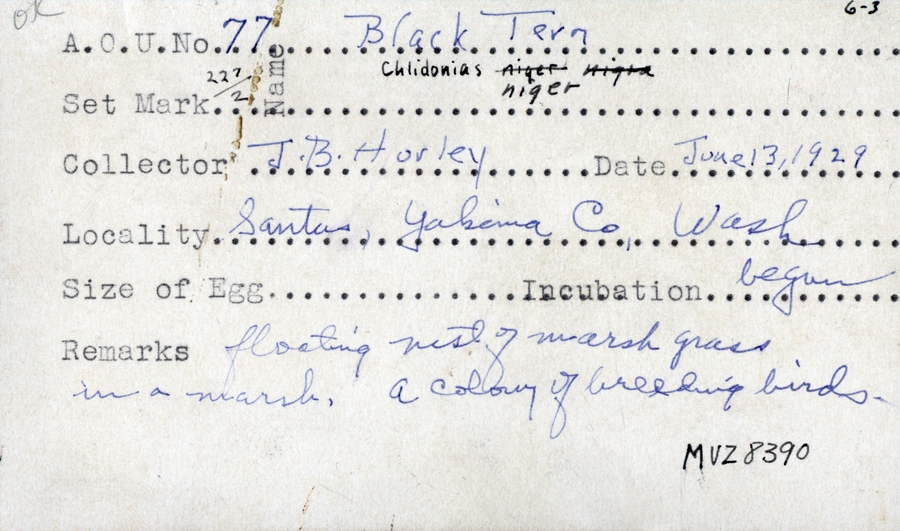 ok 6-3
A.O.U.No. 77 Name Black Tern
Chlidonias niger nigra
niger
Set Mark 227/2
Collector J.B. Hurley Date June 13, 1929
Locality Santus, Yakima Co, Wash
Size of Egg Incubation begun
Remarks floating nest of marsh grass
in a marsh. A colony of breeding birds.
MVZ 8390